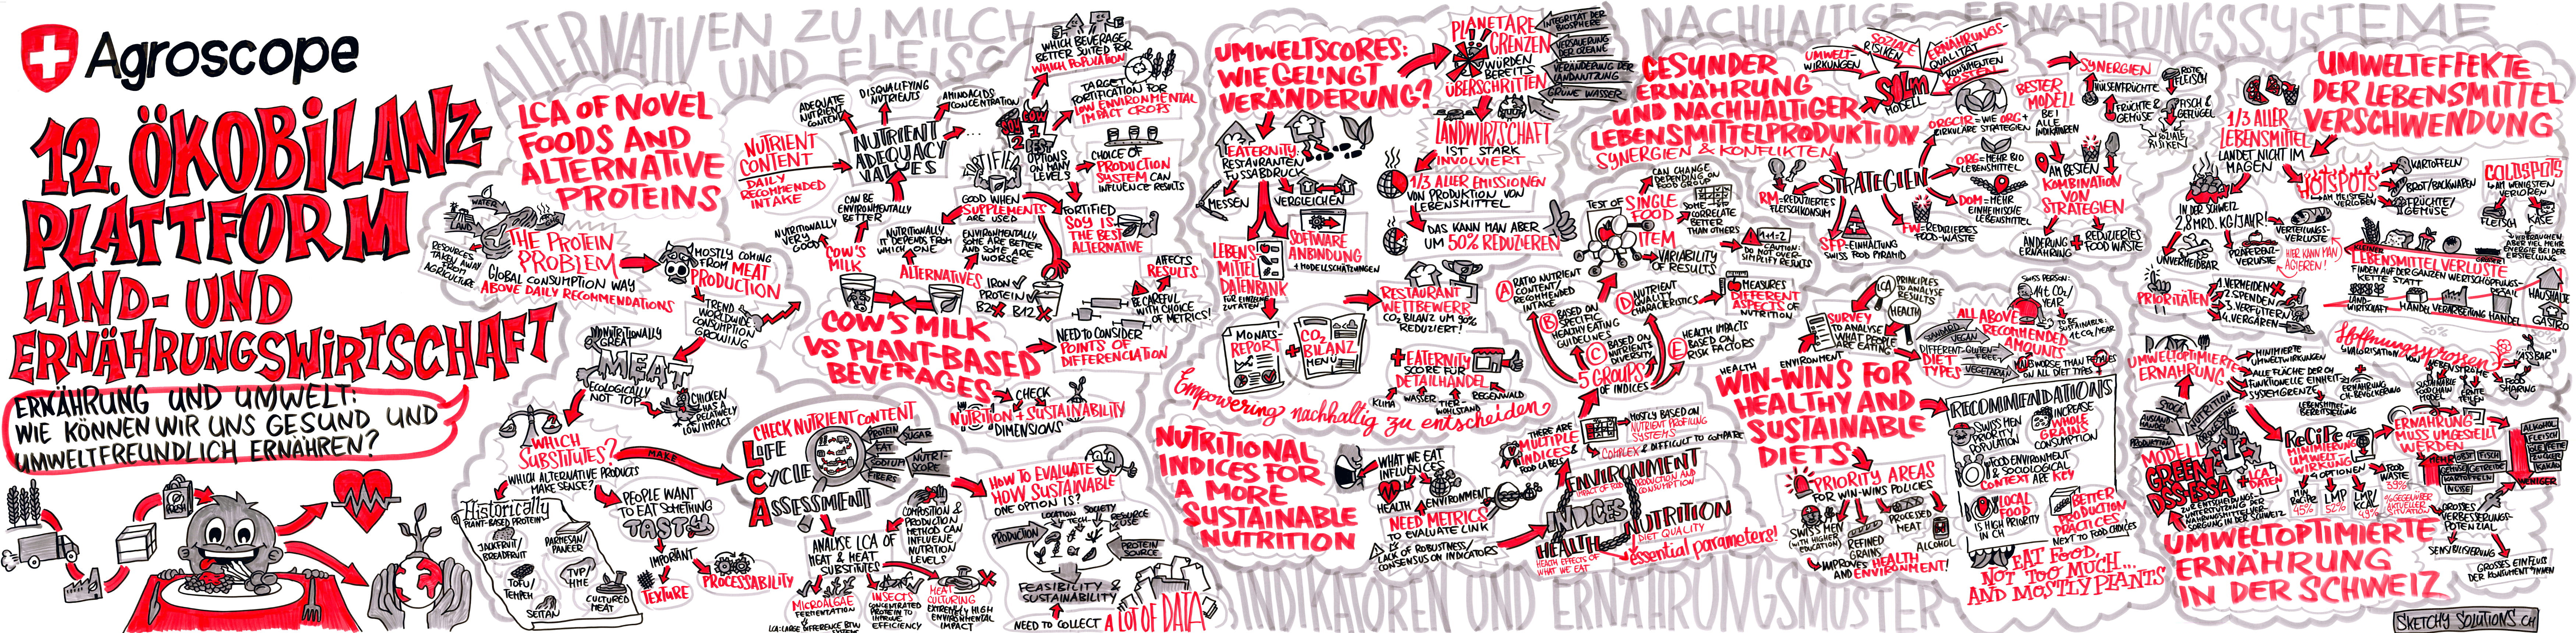 Agroscope
12. ÖKOBILANZ-
PLATTFORM
LAND- UND
ERNÄHRUNGSWIRTSCHAFT
ERNÄHRUNG UND UMWELT:
WIE KÖNNEN WIR UNS GESUND UND
UMWELTFREUNDLICH ERNÄHREN?
ALTERNATIVEN ZU MILCH
UND FLEISCH
LCA OF NOVEL
FOODS AND
ALTERNATIVE
PROTEINS
WATER
LAND
RESOURCES
TAKEN AWAY
FROM
AGRICULTURE
THE PROTEIN
PROBLEM
GLOBAL CONSUMPTION WAY
ABOVE DAILY RECOMMENDATIONS
MOSTLY COMING
FROM MEAT
PRODUCTION
TREND
WORLDWIDE
CONSUMPTION
GROWING
NUTRITIONALLY
GREAT
MEAT
ECOLOGICALLY
NOT TOP
CHICKEN
HAS A
RELATIVELY
LOW IMPACT
WHICH
SUBSTITUTES?
WHICH ALTERNATIVE PRODUCTS
MAKE SENSE?
MAKE
Historically
PLANT-BASED PROTEIN
JACKFRUIT/
BREADFRUIT
PARMESAN/
PANEER
TOFU/
TEMPEH
TVP/
HME
SEITAN
CULTURED
MEAT
PEOPLE WANT
TO EAT SOMETHING
TASTY
IMPORTANT
TEXTURE
PROCESSABILITY
CHECK NUTRIENT CONTENT
LIFE
CYCLE
ASSESSMENT
PROTEIN
SUGAR
FAT
SODIUM
NUTRI-
SCORE
FIBERS
ANALYSE LCA OF
MEAT & MEAT
SUBSTITUTES
COMPOSITION &
PRODUCTION
METHOD CAN
INFLUENCE
NUTRITION
LEVELS
MICROALGAE
FERMENTATION
LCA: LARGE DIFFERENCE BTW
INSECTS
CONCENTRATED
PROTEIN TO
IMPROVE
EFFICIENCY
MEAT
CULTURING
EXTREMELY HIGH
ENVIRONMENTAL
IMPACT
HOW TO EVALUATE
HOW SUSTAINABLE
ONE OPTION IS?
LOCATION
SOCIETY
TECH
RESOURCE
USE
PRODUCTION
PROTEIN
SOURCE
FEASIBILITY &
SUSTAINABILITY
NEED TO COLLECT A LOT OF DATA
NUTRIENT
CONTENT
DAILY
RECOMMENDED
INTAKE
ADEQUATE
NUTRIENT
CONTENT
DISQUALIFYING
NUTRIENTS
AMINOACIDS
CONCENTRATION
NUTRIENT
ADEQUACY
VALUES
...
CAN BE
ENVIRONMENTALLY
BETTER
NUTRITIONALLY
VERY
GOOD
COW'S
MILK
NUTRITIONALLY
IT DEPENDS FROM
WHICH ONE
ALTERNATIVES
ENVIRONMENTALLY,
SOME ARE BETTER
AND SOME ARE
WORSE
FORTIFIED
GOOD WHEN
SUPPLEMENTS
ARE USED
IRON
PROTEIN
B2
B12
SOY
COW
1
2
BEST
OPTIONS
ON MANY
LEVELS
WHICH BEVERAGE
BETTER SUITED FOR
WHICH POPULATION
TARGET
FORTIFICATION FOR
LOW ENVIRONMENTAL
IMPACT CROPS
CHOICE OF
PRODUCTION
SYSTEM CAN
INFLUENCE RESULTS
FORTIFIED
SOY IS
THE BEST
ALTERNATIVE
AFFECTS
RESULTS
BE CAREFUL
WITH CHOICE
OF METRICS!
NEED TO CONSIDER
POINTS OF
DIFFERENCIATION
COW'S MILK
VS PLANT-BASED
BEVERAGES
CHECK
NUTRITION + SUSTAINABILITY
DIMENSIONS
UMWELTSCORES:
WIE GELINGT
VERÄNDERUNG?
EATERNITY:
RESTAURANTEN
FUSSABDRUCK
MESSEN
VERGLEICHEN
LEBENS
MITTEL
DATENBANK
FÜR EINZELNE
ZUTATEN
SOFTWARE
ANBINDUNG
+ MODELLSCHÄTZUNGEN
MONATS-
REPORT
+
CO2
BILANZ
MENU
PLANETARE
GRENZEN
WÜRDEN
BEREITS
ÜBERSCHRITTEN
INTEGRITÄT DER
BIOSPHERE
VERSAUERUNG
DER OZEANE
VERÄNDERUNG DER
LANDNUTZUNG
GRÜNE WASSER
LANDWIRTSCHAFT
IST STARK
INVOLVIERT
1/3 ALLER EMISSIONEN
VON PRODUKTION VON
LEBENSMITTEL
DAS KANN MAN ABER
UM 50% REDUZIEREN
RESTAURANT
WETTBEWERB
CO2 BILANZ UM 90%
REDUZIERT!
+ EATERNITY
SCORE FÜR
DETAILHANDEL
KLIMA
WASSER
TIER-
WOHLSTAND
REGENWALD
Empowering nachhaltig zu entscheiden
NUTRITIONAL
INDICES FOR
A MORE
SUSTAINABLE
NUTRITION
WHAT WE EAT
INFLUENCES
HEALTH
ENVIRONMENT
NEED METRICS
TO EVALUATE LINK
LACK OF ROBUSTNESS/
CONSENSUS ON INDICATORS
THERE ARE
MULTIPLE
INDICES &
FOOD LABELS
MOSTLY BASED ON
NUTRIENT PROFILING
SYSTEMS
COMPLEX & DIFFICULT TO COMPARE
ENVIRONMENT
IMPACT OF FOOD PRODUCTION AND
CONSUMPTION
INDICES
NUTRITION
DIET QUALITY
HEALTH
HEALTH EFFECTS OF
WHAT WE EAT
essential parameters!
5 GROUPS
OF INDICES
A
RATIO NUTRIENT
CONTENT/
RECOMMENDED
INTAKE
B
BASED ON
SPECIFIC
HEALTHY EATING
GUIDELINES
C
BASED ON
NUTRIENTS
DIVERSITY
D
NUTRIENT
QUALITY
CHARACTERISTICS
E
HEALTH IMPACTS
BASED ON
RISK FACTORS
TEST OF SINGLE
FOOD
ITEM
CAN CHANGE
DEPENDING ON
FOOD GROUP
SOME
CORRELATE
BETTER
THAN OTHERS
VARIABILITY
OF RESULTS
1+1=2
CAUTION:
DO NOT OVER-
SIMPLIFY RESULTS
MEASURES
DIFFERENT
ASPECTS OF
NUTRITION
NACHHALTIGE ERNÄHRUNGSSYSTEME
GESUNDER
ERNÄHRUNG
UND NACHHALTIGER
LEBENSMITTELPRODUKTION
SYNERGIEN & KONFLIKTEN
UMWELT-
WIRKUNGEN
SOZIALE
RISIKEN
ERNÄHRUNGS-
QUALITÄT
KONSUMENTEN
KOSTEN
MODELL
STRATEGIEN
RM=REDUZIERTES
FLEISCHKONSUM
SFP=EINHALTUNG
SWISS FOOD PYRAMID
FW=REDUZIERTES
FOOD-WASTE
DOM=MEHR
EINHEIMISCHE
LEBENSMITTEL
ORG=MEHR BIO
LEBENSMITTEL
ORGCIR=WIE ORG+
ZIRKULÄRE STRATEGIEN
BESTER
MODELL
BEI
ALLE
INDIKATOREN
SYNERGIEN
HÜLSENFRÜCHTE
FRÜCHTE &
GEMÜSE
ROTE
FLEISCH
FISCH &
GEFLÜGEL
SOZIALE
RISIKEN
AM BESTEN
KOMBINATION
VON
STRATEGIEN
ÄNDERUNG
ERNÄHRUNG
+
REDUZIERTES
FOOD WASTE
WIN-WINS FOR
HEALTHY AND
SUSTAINABLE
DIETS
HEALTH
ENVIRONMENT
SURVEY
TO ANALYSE
WHAT PEOPLE
ARE EATING
LCA
PRINCIPLES
TO ANALYSE
RESULTS
HEALTH
STANDARD
VEGAN
DIFFERENT
DIET
TYPES
GLUTEN-
FREE
VEGETARIAN
ALL ABOVE
RECOMMENDED
AMOUNTS
SWISS PERSON:
TO BE
SUSTAINABLE:
MALES WORSE THAN FEMALES
ON ALL DIET TYPES
PRIORITY AREAS
FOR WIN-WINS POLICIES
SWISS MEN
(WITH HIGHER
EDUCATION)
REFINED
GRAINS
PROCESSED
MEAT
ALCOHOL
IMPROVES HEALTH
AND ENVIRONMENT!
RECOMMENDATIONS
SWISS MEN
PRIORITY
POPULATION
INCREASE
WHOLE
GRAINS
CONSUMPTION
FOOD ENVIRONMENT
& SOCIOLOGICAL
CONTEXT ARE KEY
LOCAL
FOOD
IS HIGH PRIORITY
IN CH
BETTER
PRODUCTION
PRACTICES
NEXT TO FOOD CHOICES
EAT FOOD,
NOT TOO MUCH...
AND MOSTLY PLANTS
UND ERNÄHRUNGSMUSTER
UMWELTEFFEKTE
DER LEBENSMITTEL
VERSCHWENDUNG
1/3 ALLER
LEBENSMITTEL
LANDET NICHT IM
MAGEN
IN DER SCHWEIZ
2,8 MRD. KG/JAHR!
UNVERMEIDBAR
PRÄFERENZ-
VERLUSTE
VERTEILUNGS-
VERLUSTE
HIER KANN MAN
AGIEREN!
HOTSPOTS
AM MEISTEN
VERLOREN
KARTOFFELN
BROT/BACKWAREN
FRÜCHTE/
GEMÜSE
COLDSPOTS
AM WENIGSTEN
VERLOREN
FLEISCH
KÄSE
PRIORITÄTEN
1. VERMEIDEN
2. SPENDEN
3. VERFÜTTERN
4. VERGÄREN
KLEINER
GRÖSSER
LEBENSMITTELVERLUSTE
FINDEN AUF DER GANZEN WERTSCHÖPFUNGS-
KETTE STATT
LAND-
WIRTSCHAFT
HANDEL
VERARBEITUNG
HANDEL
HAUSHALTE
GASTRO
Hoffnungssprossen
VALORISATION VON NEBENSTRÖME
"ASSBAR"
FOOD
SHARING
UMWELTOPTIMIERTE
ERNÄHRUNG
MINIMIERTE
UMWELTWIRKUNGEN
ALLE FLÄCHE DER CH
FUNKTIONELLE EINHEIT
ERNÄHRUNG
CH-BEVÖLKERUNG
SYSTEMGRENZE
LEBENSMITTEL
BEREITSTELLUNG
STOCK
NUTRITION
PROCESSING
PRODUCTION
MODELL
GREEN
DSS-ESSA
+
LCA
DATEN
ZUR ENTSCHEIDUNGS-
UNTERSTÜTZUNG DER
SORGUNG IN DER SCHWEIZ
ReCiPe
MINIMIERUNG
UMWELT
WIRKUNG
4 OPTIONEN
MIN
ReCiPe
45%
LMP
52%
LMP/
KCAL
FOOD
WASTE
39%
% GEGENÜBER
AKTUELLER
SITUATION
ERNÄHRUNG
MUSS UMGESTELLT
WERDEN
MEHR
OBST
FISCH
GEMÜSE
GETREIDE
KARTOFFELN
NÜSSE
WENIGER
ALKOHOL
FLEISCH
ÖLE/FETTE
ZUCKER
KAKAO
GROSSES
VERBESSERUNGS-
POTENZIAL
SENSIBILISIERUNG
GROSSES EINFLUSS
DER KONSUMENT*INNEN
UMWELTOPTIMIERTE
ERNÄHRUNG
IN DER SCHWEIZ
SKETCHY SOLUTIONS.CH